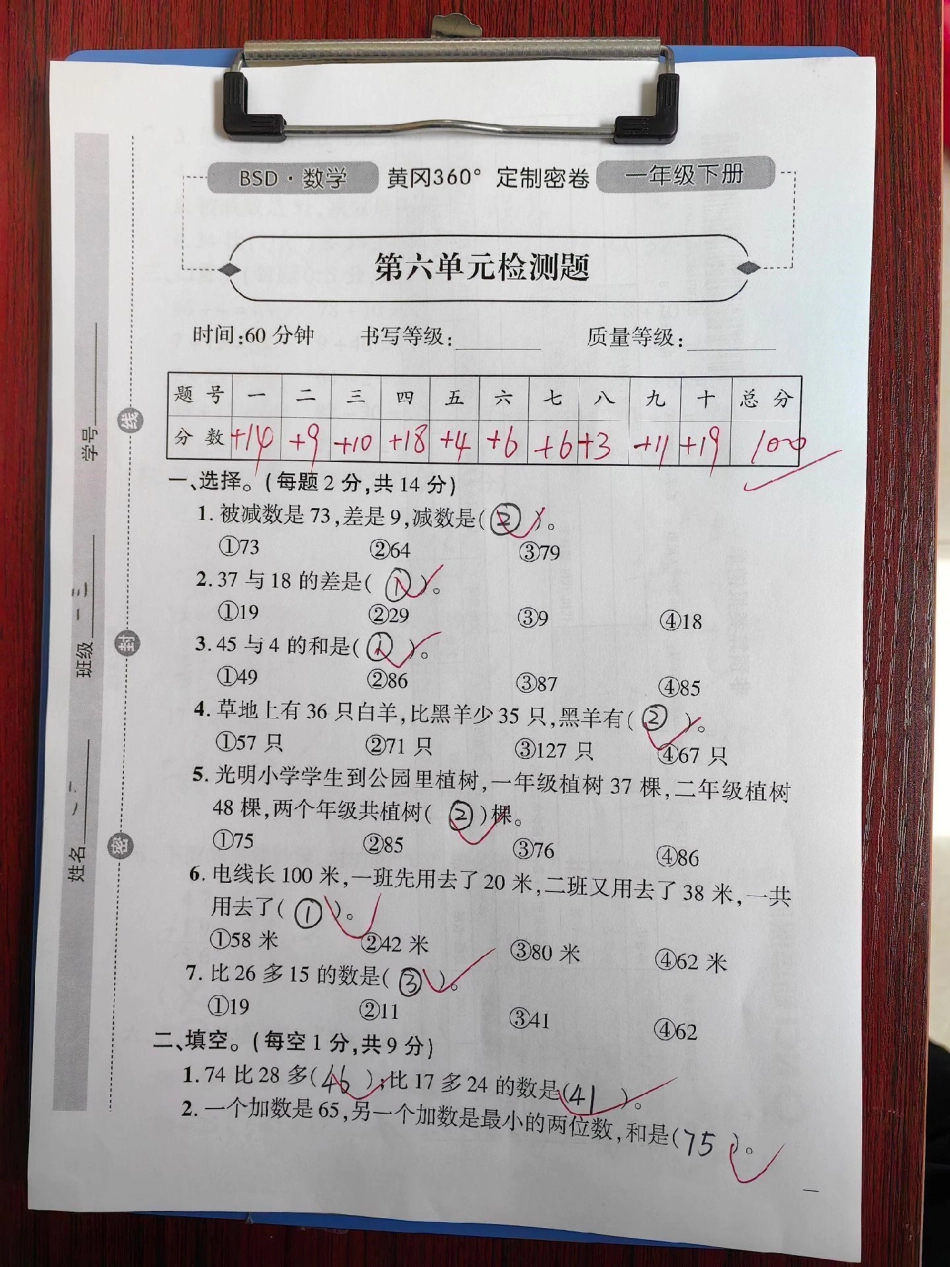 BSD·数学 黄冈360° 定制密卷 一年级下册
第六单元检测题
时间:60分钟 书写等级:________ 质量等级:________
题号 一 二 三 四 五 六 七 八 九 十 总分
分数 +14 +9 +10 +18 +4 +6 +6 +3 +11 +19 100
一、选择。(每题2分,共14分)
1.被减数是73,差是9,减数是(②)。
①73 ②64 ③79
2.37与18的差是(①)。
①19 ②29 ③9 ④18
3.45与4的和是(①)。
①49 ②86 ③87 ④85
4.草地上有36只白羊,比黑羊少35只,黑羊有(②)。
①57只 ②71只 ③127只 ④67只
5.光明小学学生到公园里植树,一年级植树37棵,二年级植树
48棵,两个年级共植树(②)棵。
①75 ②85 ③76 ④86
6.电线长100米,一班先用去了20米,二班又用去了38米,一共
用去了(①)。
①58米 ②42米 ③80米 ④62米
7.比26多15的数是(③)。
①19 ②11 ③41 ④62
二、填空。(每空1分,共9分)
1.74比28多(46);比17多24的数是(41)。
2.一个加数是65,另一个加数是最小的两位数,和是(75)。
学号________
班级________
姓名________
线
封
密